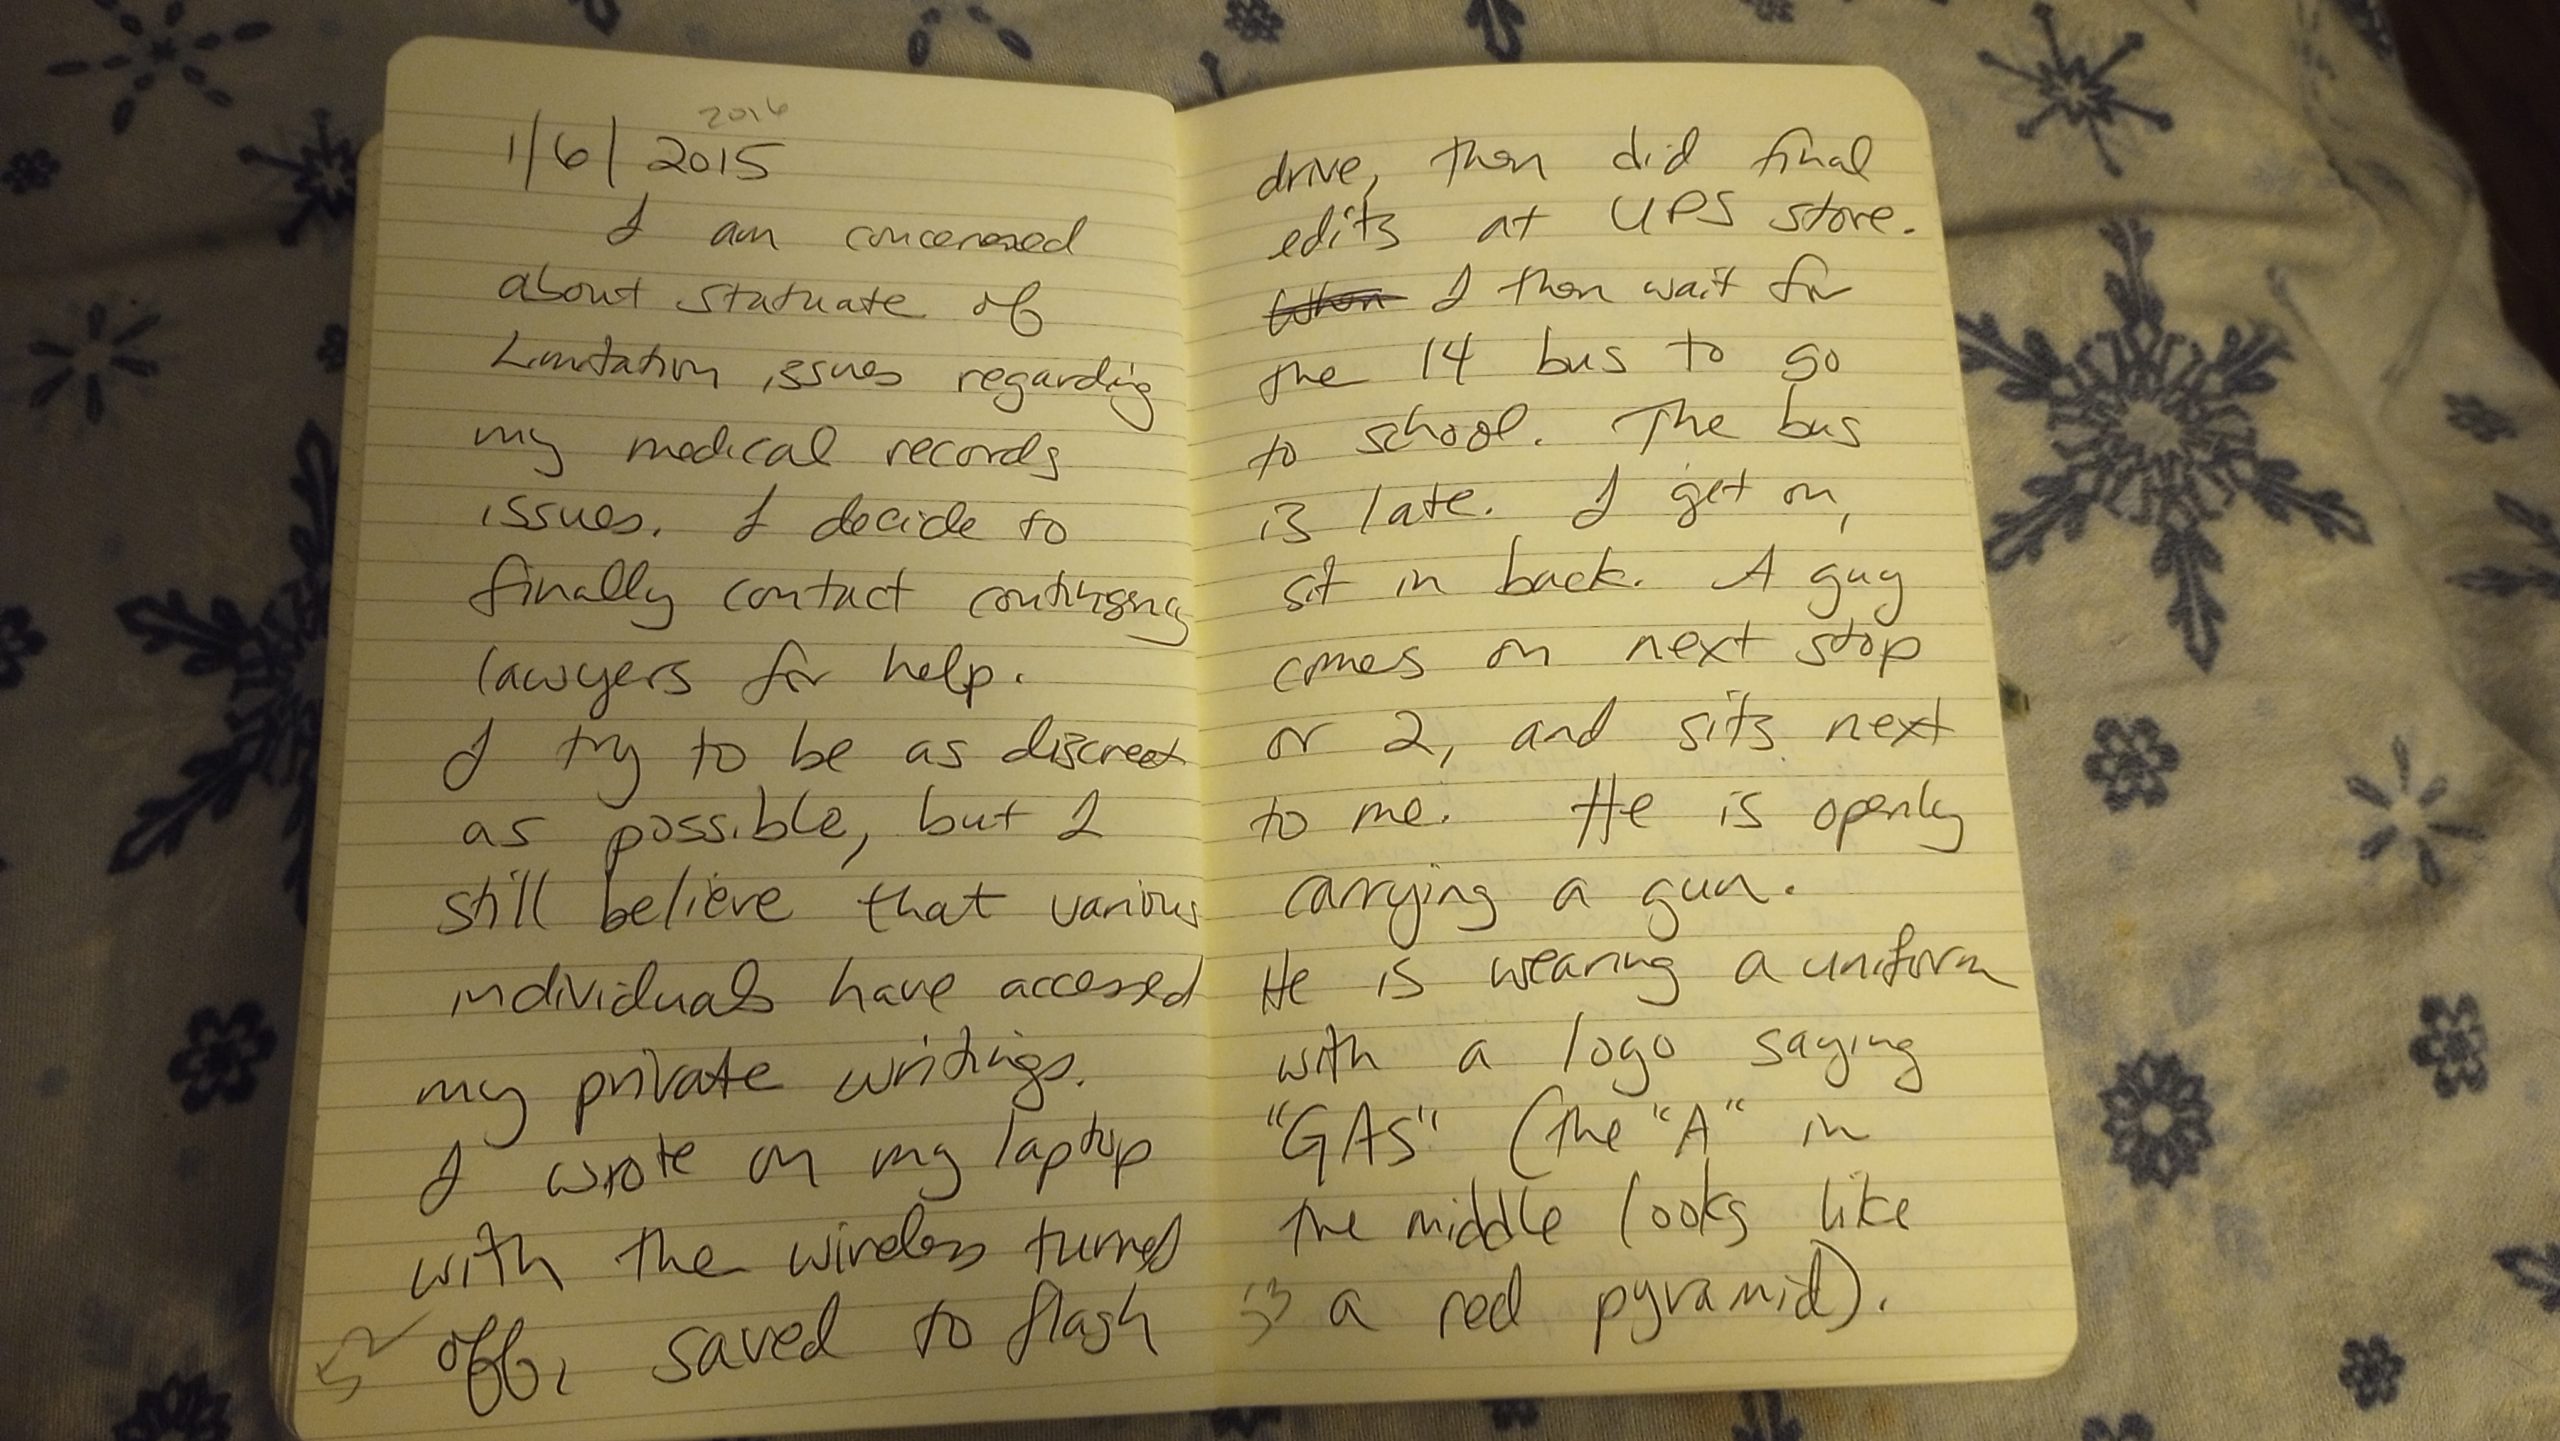 2016
1/6/2015
I am concerened
about statuate of
Limitation issues regarding
my medical records
issues. I decide to
finally contact
lawyers for help.
I try to be as discreet
as possible, but I
still believe that various
individuals have accessed
my private writings.
I wrote on my laptop
with the wireless turned
off, saved to flash
52
drive, then did final
edits at UPS store.
When I then wait for
the 14 bus to go
to school. The bus
is late. I get on,
sit in back. A guy
comes on next stop
or 2, and sits next
to me. He is openly
carrying a gun.
He is wearing a uniform
with a logo saying
"GAS" (the "A" in
the middle looks like
a red pyramid).
53